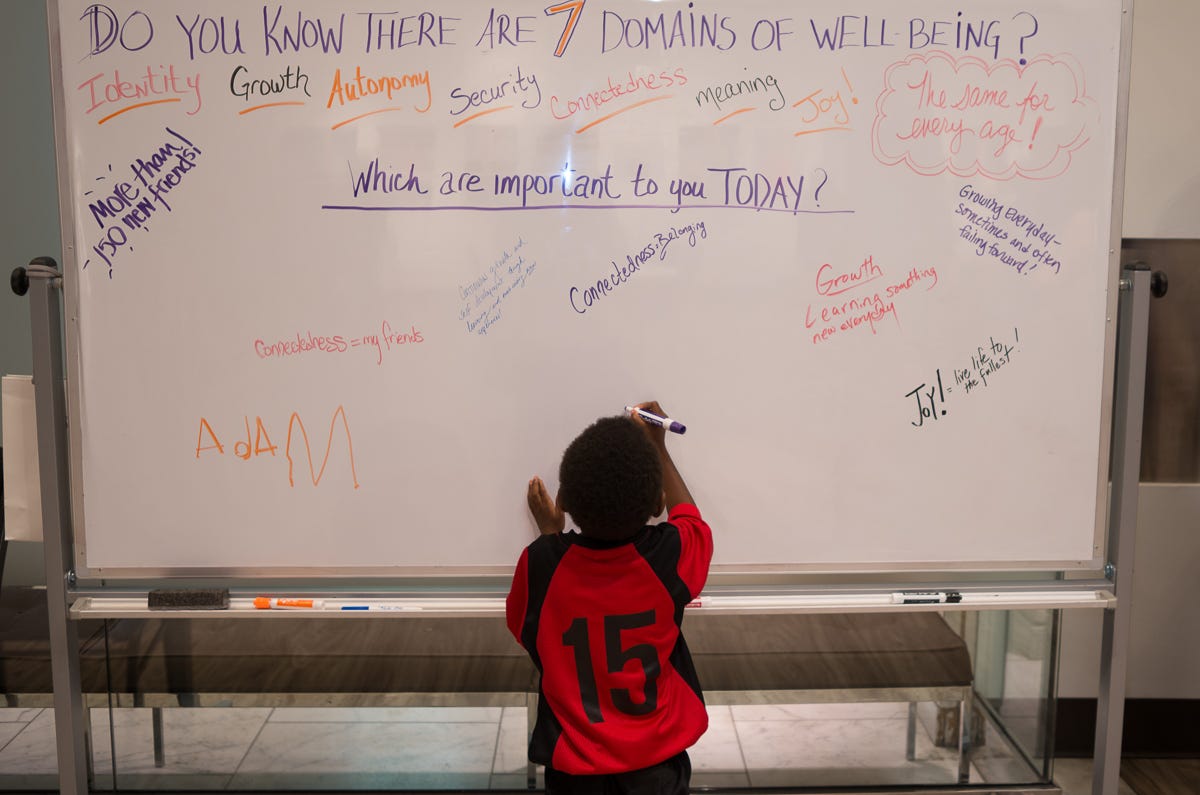 DO YOU KNOW THERE ARE 7 DOMAINS OF WELL-BEING?
Identity Growth Autonomy Security Connectedness meaning Joy!
The same for
every age!
More than
150 new friends!
Which are important to you TODAY?
Growing Everyday-
sometimes and often
failing forward!
Connectedness: Belonging
Growth
Learning something
new everyday
Connectedness = my friends
JOY! = live life to
the fullest!
AdAM
15